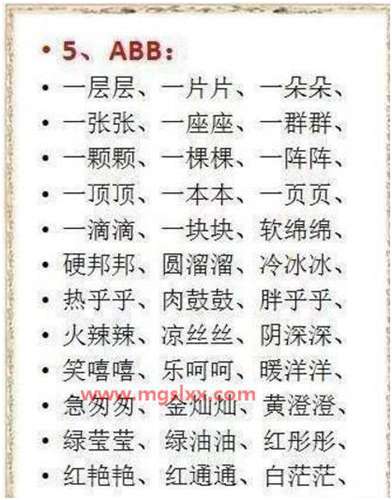 5、ABB：
一层层、一片片、一朵朵、
一张张、一座座、一群群、
一颗颗、一棵棵、一阵阵、
一顶顶、一本本、一页页、
一滴滴、一块块、软绵绵、
硬邦邦、圆溜溜、冷冰冰、
热乎乎、肉鼓鼓、胖乎乎、
火辣辣、凉丝丝、阴深深、
笑嘻嘻、乐呵呵、暖洋洋、
www.mgslxx.com
急匆匆、金灿灿、黄澄澄、
绿莹莹、绿油油、红彤彤、
红艳艳、红通通、白茫茫、